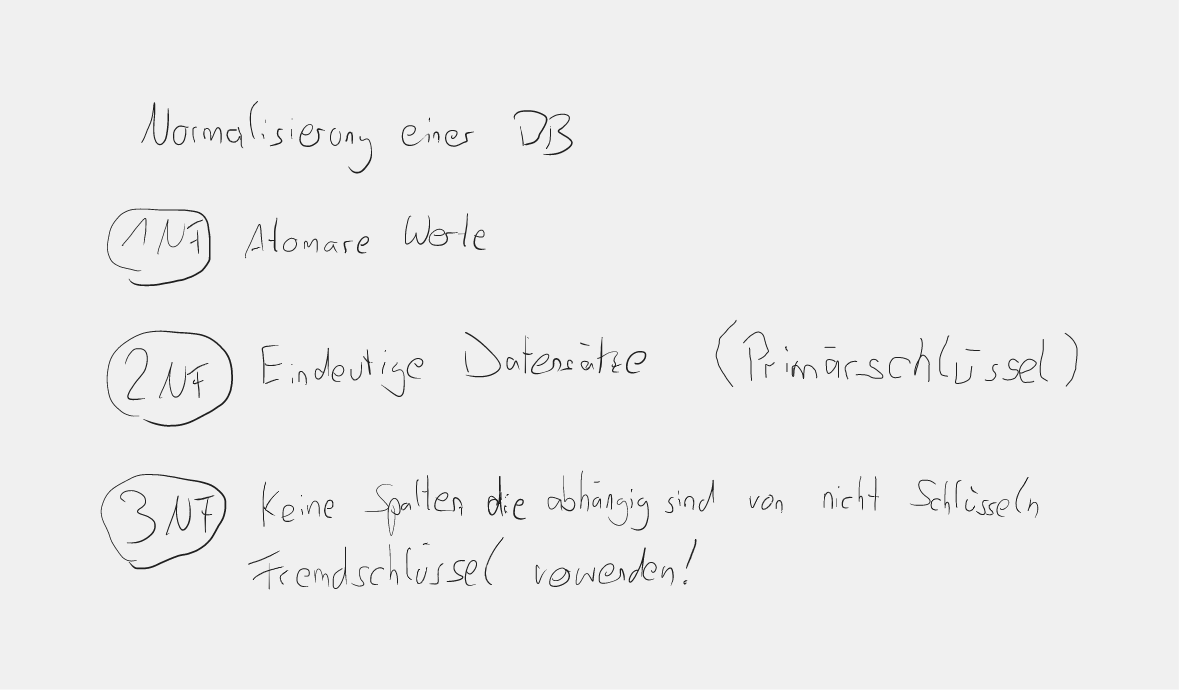 Normalisierung einer DB
1NF Atomare Werte
2NF Eindeutige Datensätze (Primärschlüssel)
3NF Keine Spalten die abhängig sind von nicht Schlüsseln
Fremdschlüssel verwenden!